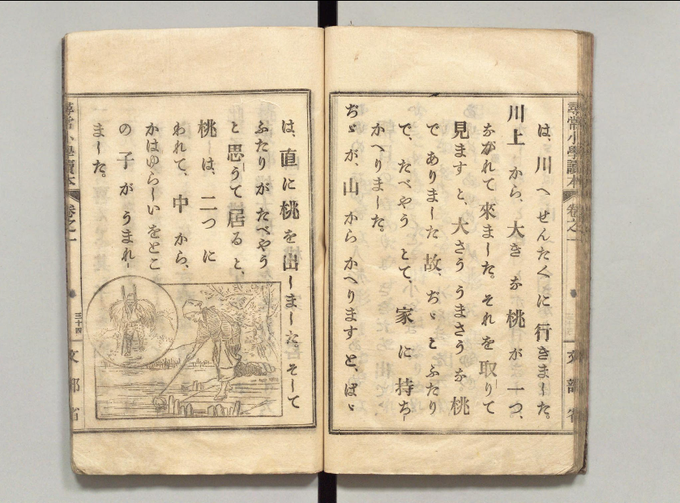 尋常小學讀本 卷之一
文部省
は、川へせんたくに行きました。
川上から、大きな桃が一つ、
ながれて來ました。それを取りて
見ますと、大さううまさうな桃
でありました故、ぢゞとふたり
で、たべやうとて、家に持ち
かへりました。
ぢゞが、山からかへりますと、ばゞ
は、直に桃を出しました。そして
ふたりがたべやう
と思うて居ると、
桃は、二つに
われて、中から、
かはゆらしいをとこ
の子がうまれ
ました。
尋常小學讀本 卷之一
三十四
文部省